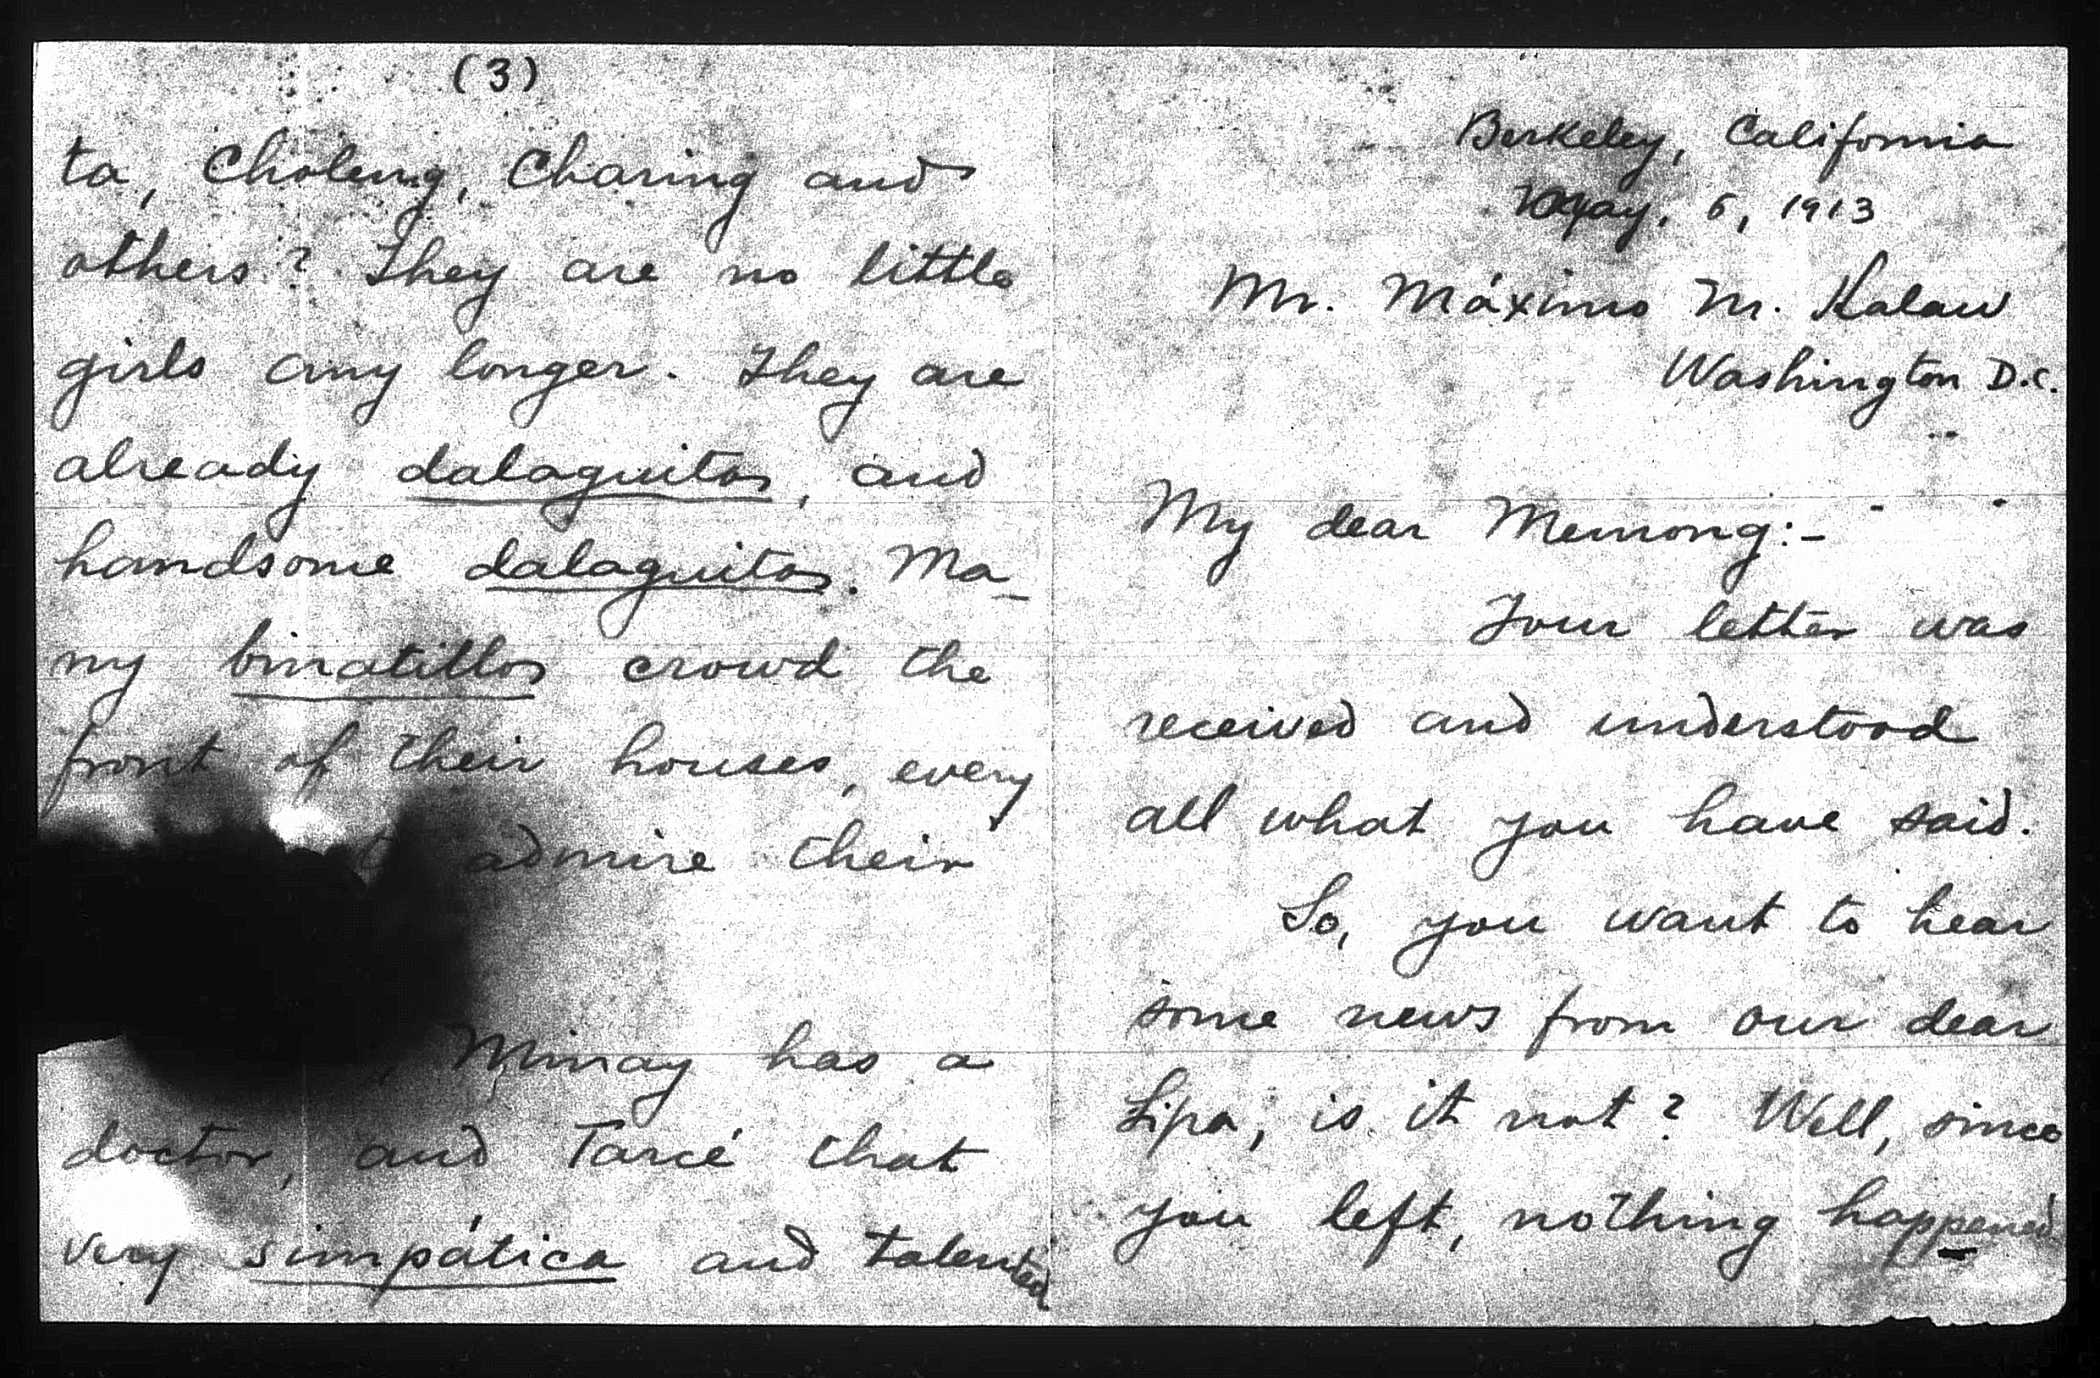 (3)
ta, Choleng, Charing and
others? They are no little
girls any longer. They are
already dalaguitas, and
handsome dalaguitas. Ma-
ny binatillos crowd the
front of their houses, every
admire their
Minay has a
doctor, and Tarcé that
very simpática and talented
Berkeley, California
May, 6, 1913
Mr. Máximo M. Kalaw
Washington D.C.
My dear Memong:-
Your letter was
received and understood
all what you have said.
So, you want to hear
some news from our dear
Lipa, is it not? Well, since
you left, nothing happened